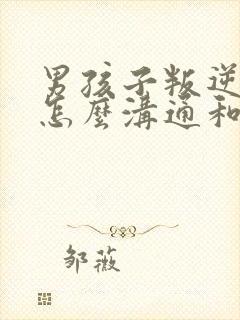 男孩子叛逆
怎麼溝通和
邹薇